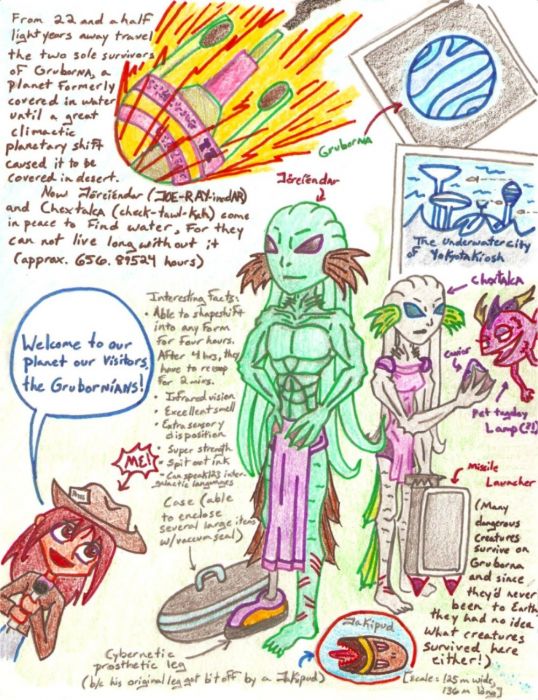 From 22 and a half
lightyears away travel
the two sole survivors
of Gruborna, a
planet formerly
covered in water
until a great
climactic
planetary shift
caused it to be
covered in desert.
Now Jöreiéndar (JOE-RAY-indAR)
and Chextalca (check-tawl-kah) come
in peace to find water, for they
can not live long without it
(approx. 656.89524 hours)
Gruborna
The Underwater city
of Yokyotakiosh
Jöreiéndar
Chextalca
Interesting Facts:
• Able to shapeshift
into any form
for four hours.
After 4 hrs, they
have to recoup
for 2 mins.
• Infrared vision
• Excellent smell
• Extra sensory
disposition
• Super strength
• Spit out ink
• Can speak 123 inter-
galactic languages
Welcome to our
planet our visitors,
the Grubornians!
ME!
Case (able
to enclose
several large items
w/vacuum seal)
Pet tugday
Lamp (?!)
Missile
Launcher
(Many
dangerous
creatures
survive on
Gruborna
and since
they'd never
been to Earth,
they had no idea
what creatures
survived here
either!)
Cybernetic
prosthetic leg
(b/c his original leg got bit off by a Jakipud)
Jakipud
[scale: 125 m wide,
130 m long]